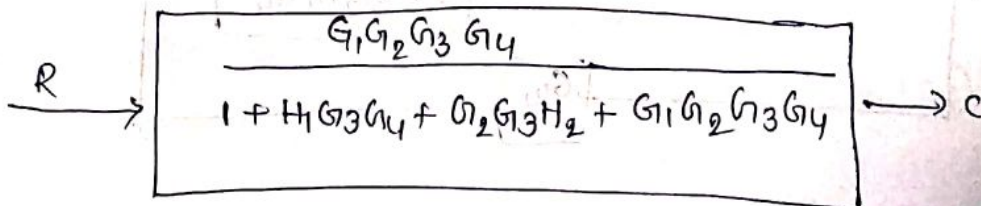 G₁G₂G₃G₄
R
1 + H₁G₃G₄ + G₂G₃H₂ + G₁G₂G₃G₄
C